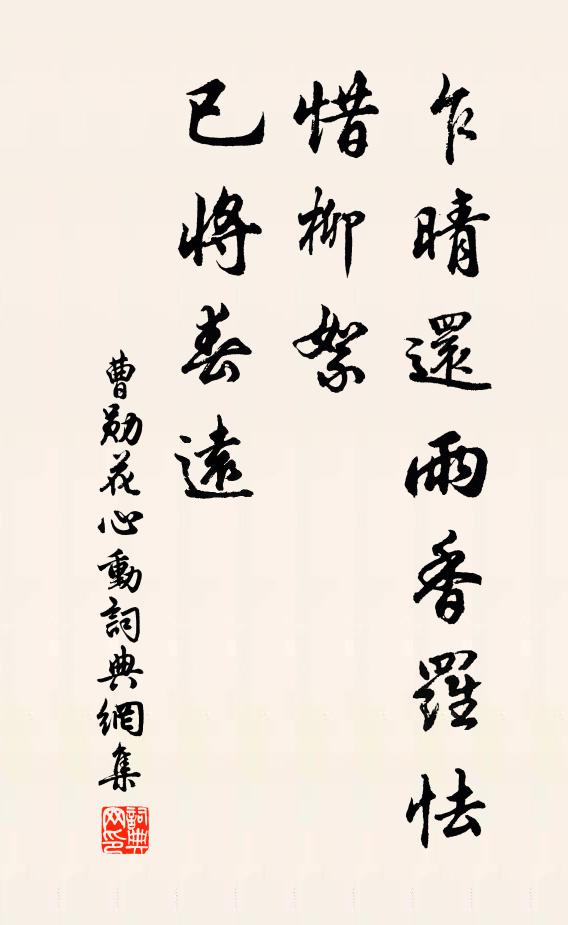 乍晴還雨香羅怯
惜柳絮
已將春遠
曹勛花心動詞典網集
詞典网印